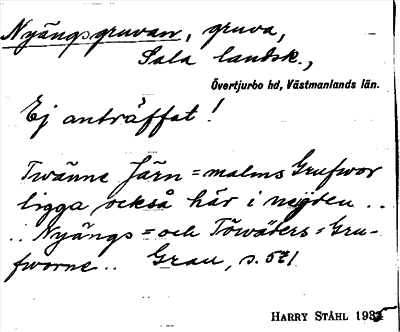 Nyängsgruvan, gruva,
Sala landsk.,
Övertjurbo hd, Västmanlands län.
Ej anträffat!
Twänne Järn=malms Grufwor
ligga också här i neijden ..
.. Nyängs= och Töwäders=Gru-
fworne .. Grau, s. 571
HARRY STÅHL 1935